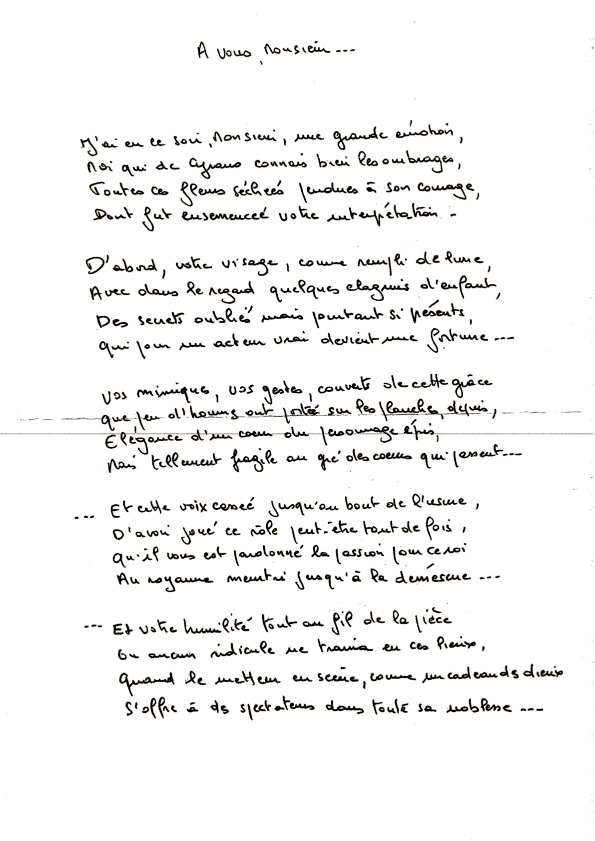 A vous, Monsieur ---
J'ai eu ce soir, Monsieur, une grande émotion,
Moi qui de Cyrano connais bien les ombrages,
Toutes ces fleurs séchées pendues à son courage,
Dont fut ensemenceé votre interprétation -
D'abord, votre visage, comme rempli de lune,
Avec dans le regard quelques chagrins d'enfant,
Des secrets oubliés mais pourtant si présents,
Qui pour un acteur vrai devient une fortune ---
Vos mimiques, vos gestes, couverts de cette grâce
Que peu d'hommes ont porté sur les planches, depuis,
Elégance d'un coeur du personnage épris,
Mais tellement fragile au gré des coeurs qui passent ---
--- Et cette voix cassée jusqu'au bout de l'usure,
D'avoir joué ce rôle peut-être tant de fois,
Qu'il vous est pardonné la passion pour ce roi
Au royaume meurtri jusqu'à la démesure ---
--- Et votre humilité tout au fil de la pièce
Ou aucun ridicule ne traina en ces lieux,
Quand le metteur en scène, comme un cadeau des dieux
S'offre à des spectateurs dans toute sa noblesse ---